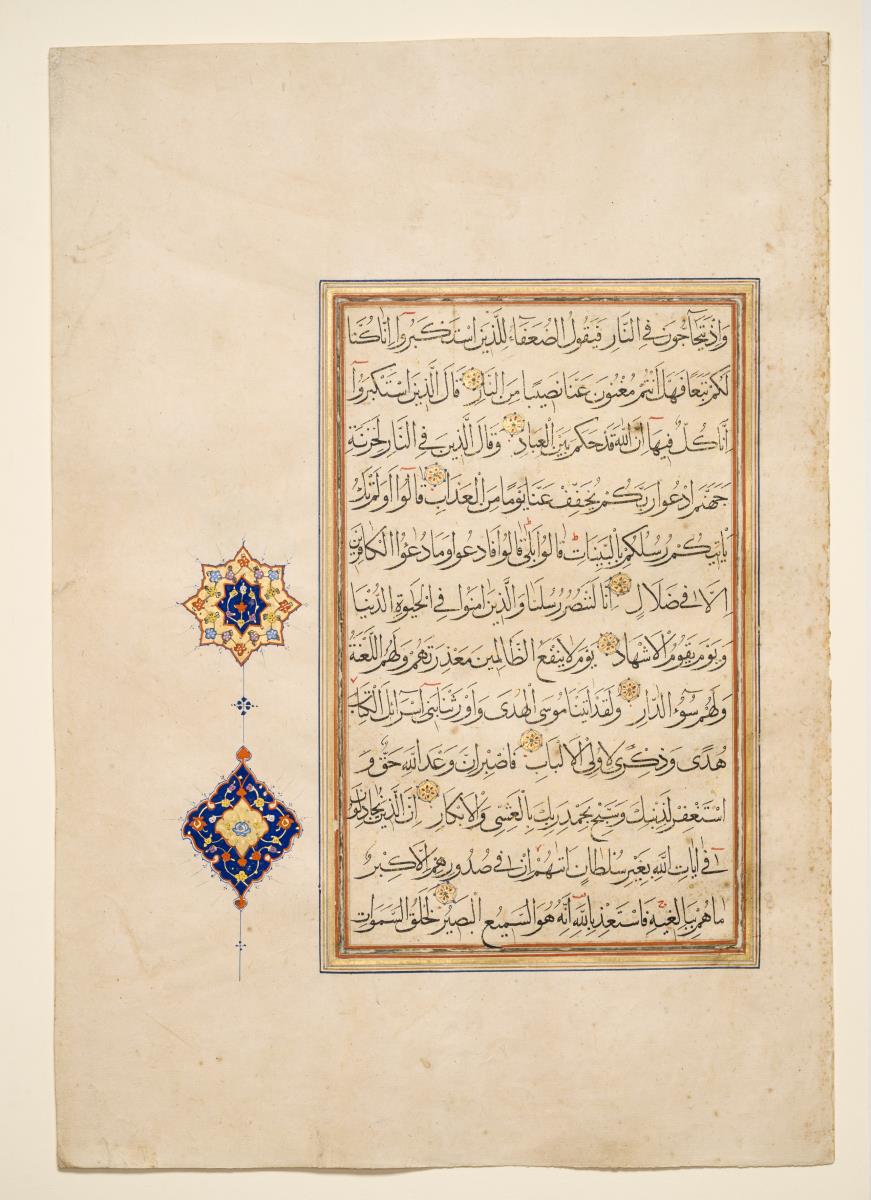 وَاِذْ يَتَحَاجُّونَ فِى النَّارِ فَيَقُولُ الضُّعَفَاءُ لِلَّذِينَ اسْتَكْبَرُوا اِنَّا كُنَّا
لَكُمْ تَبَعًا فَهَلْ اَنْتُمْ مُغْنُونَ عَنَّا نَصِيبًا مِنَ النَّارِ قَالَ الَّذِينَ اسْتَكْبَرُوا
اِنَّا كُلٌّ فِيهَا اِنَّ اللّٰهَ قَدْ حَكَمَ بَيْنَ الْعِبَادِ وَقَالَ الَّذِينَ فِى النَّارِ لِخَزَنَةِ
جَهَنَّمَ ادْعُوا رَبَّكُمْ يُخَفِّفْ عَنَّا يَوْمًا مِنَ الْعَذَابِ قَالُوا اَوَلَمْ تَكُ
تَاْتِيكُمْ رُسُلُكُمْ بِالْبَيِّنَاتِ قَالُوا بَلٰى قَالُوا فَادْعُوا وَمَا دُعٰٓؤُا الْكَافِرِينَ
اِلَّا فِى ضَلَالٍ اِنَّا لَنَنْصُرُ رُسُلَنَا وَالَّذِينَ اٰمَنُوا فِى الْحَيٰوةِ الدُّنْيَا
وَيَوْمَ يَقُومُ الْاَشْهَادُ يَوْمَ لَا يَنْفَعُ الظَّالِمِينَ مَعْذِرَتُهُمْ وَلَهُمُ اللَّعْنَةُ
وَلَهُمْ سُوءُ الدَّارِ وَلَقَدْ اٰتَيْنَا مُوسَى الْهُدٰى وَاَوْرَثْنَا بَنِى اِسْرَائِلَ الْكِتَابَ
هُدًى وَذِكْرٰى لِاُولِى الْاَلْبَابِ فَاصْبِرْ اِنَّ وَعْدَ اللّٰهِ حَقٌّ وَ
اسْتَغْفِرْ لِذَنْبِكَ وَسَبِّحْ بِحَمْدِ رَبِّكَ بِالْعَشِىِّ وَالْاِبْكَارِ اِنَّ الَّذِينَ يُجَادِلُونَ
فِى اٰيَاتِ اللّٰهِ بِغَيْرِ سُلْطَانٍ اَتٰيهُمْ اِنْ فِى صُدُورِهِمْ اِلَّا كِبْرٌ
مَا هُمْ بِبَالِغِيهِ فَاسْتَعِذْ بِاللّٰهِ اِنَّهُ هُوَ السَّمِيعُ الْبَصِيرُ لَخَلْقُ السَّمٰوَاتِ